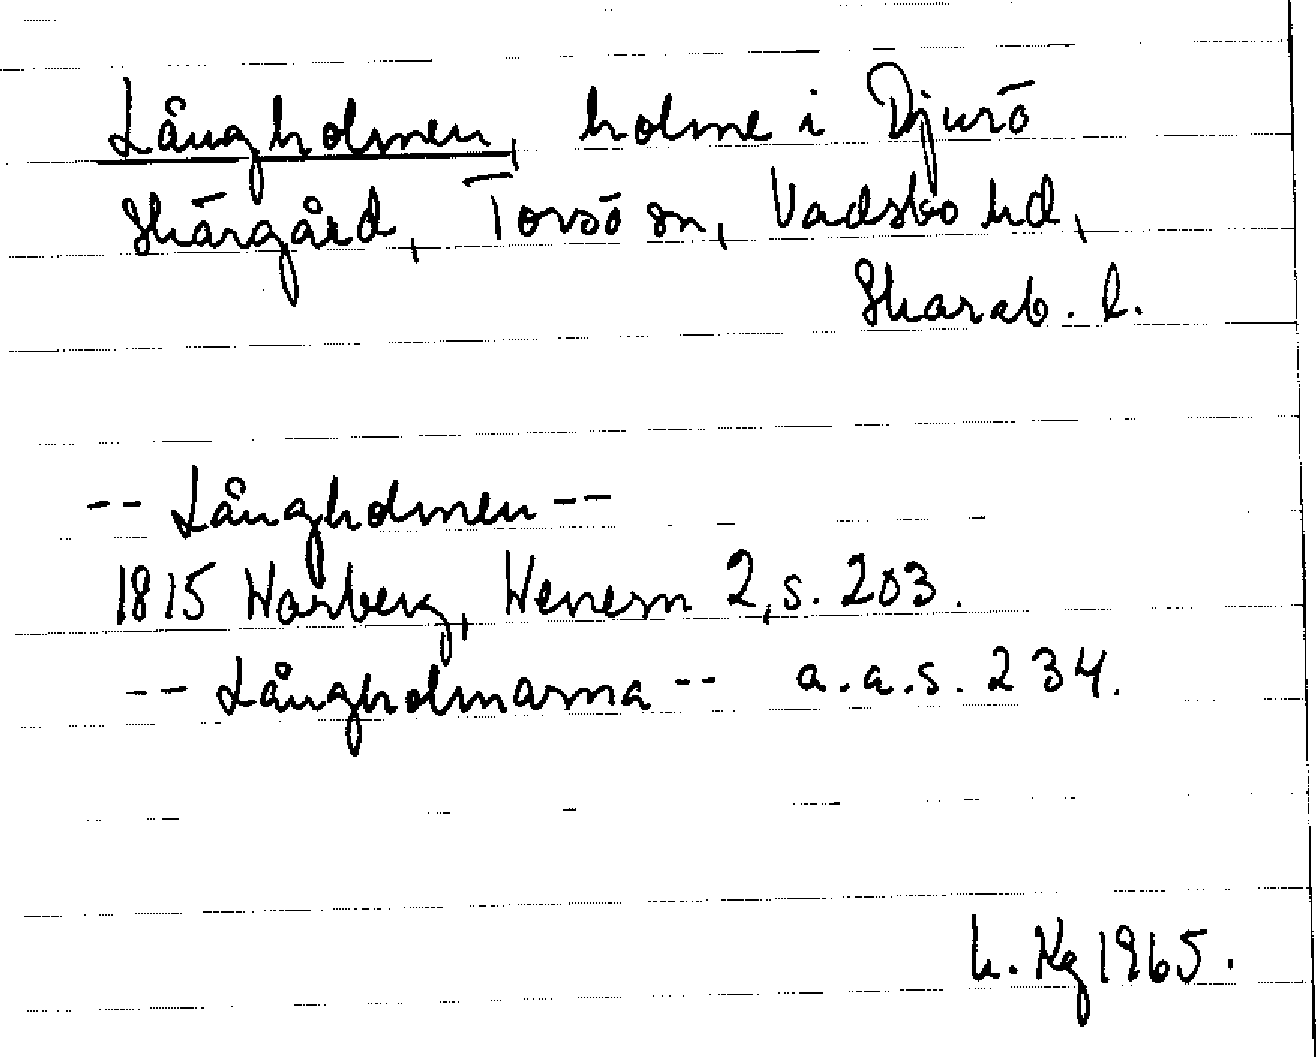 Långholmen, holme i Djurö
Skärgård, Torsö sn, Vadsbo hd,
Skarab. l.
-- Långholmen --
1815 Warberg, Wenern 2, s. 203.
-- Långholmarna -- a.a.s. 234.
h. Kg 1965.